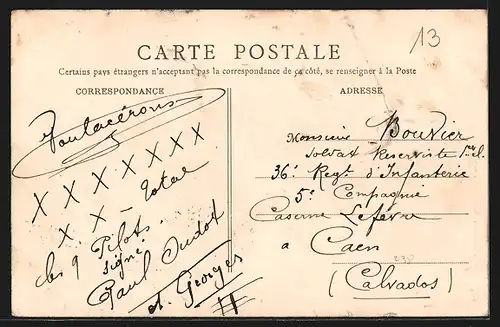 CARTE POSTALE
13
Certains pays étrangers n'acceptant pas la correspondance de ce côté, se renseigner à la Poste
CORRESPONDANCE
X X X X X X X
X X - total
les 9 Pilots
signé
Paul Oudot
et Georges
ADRESSE
Monsieur Bouvier
Soldat Reserviste
36e Regt d'Infanterie
5e Compagnie
Caserne Lefèvre
a Caen
(Calvados)